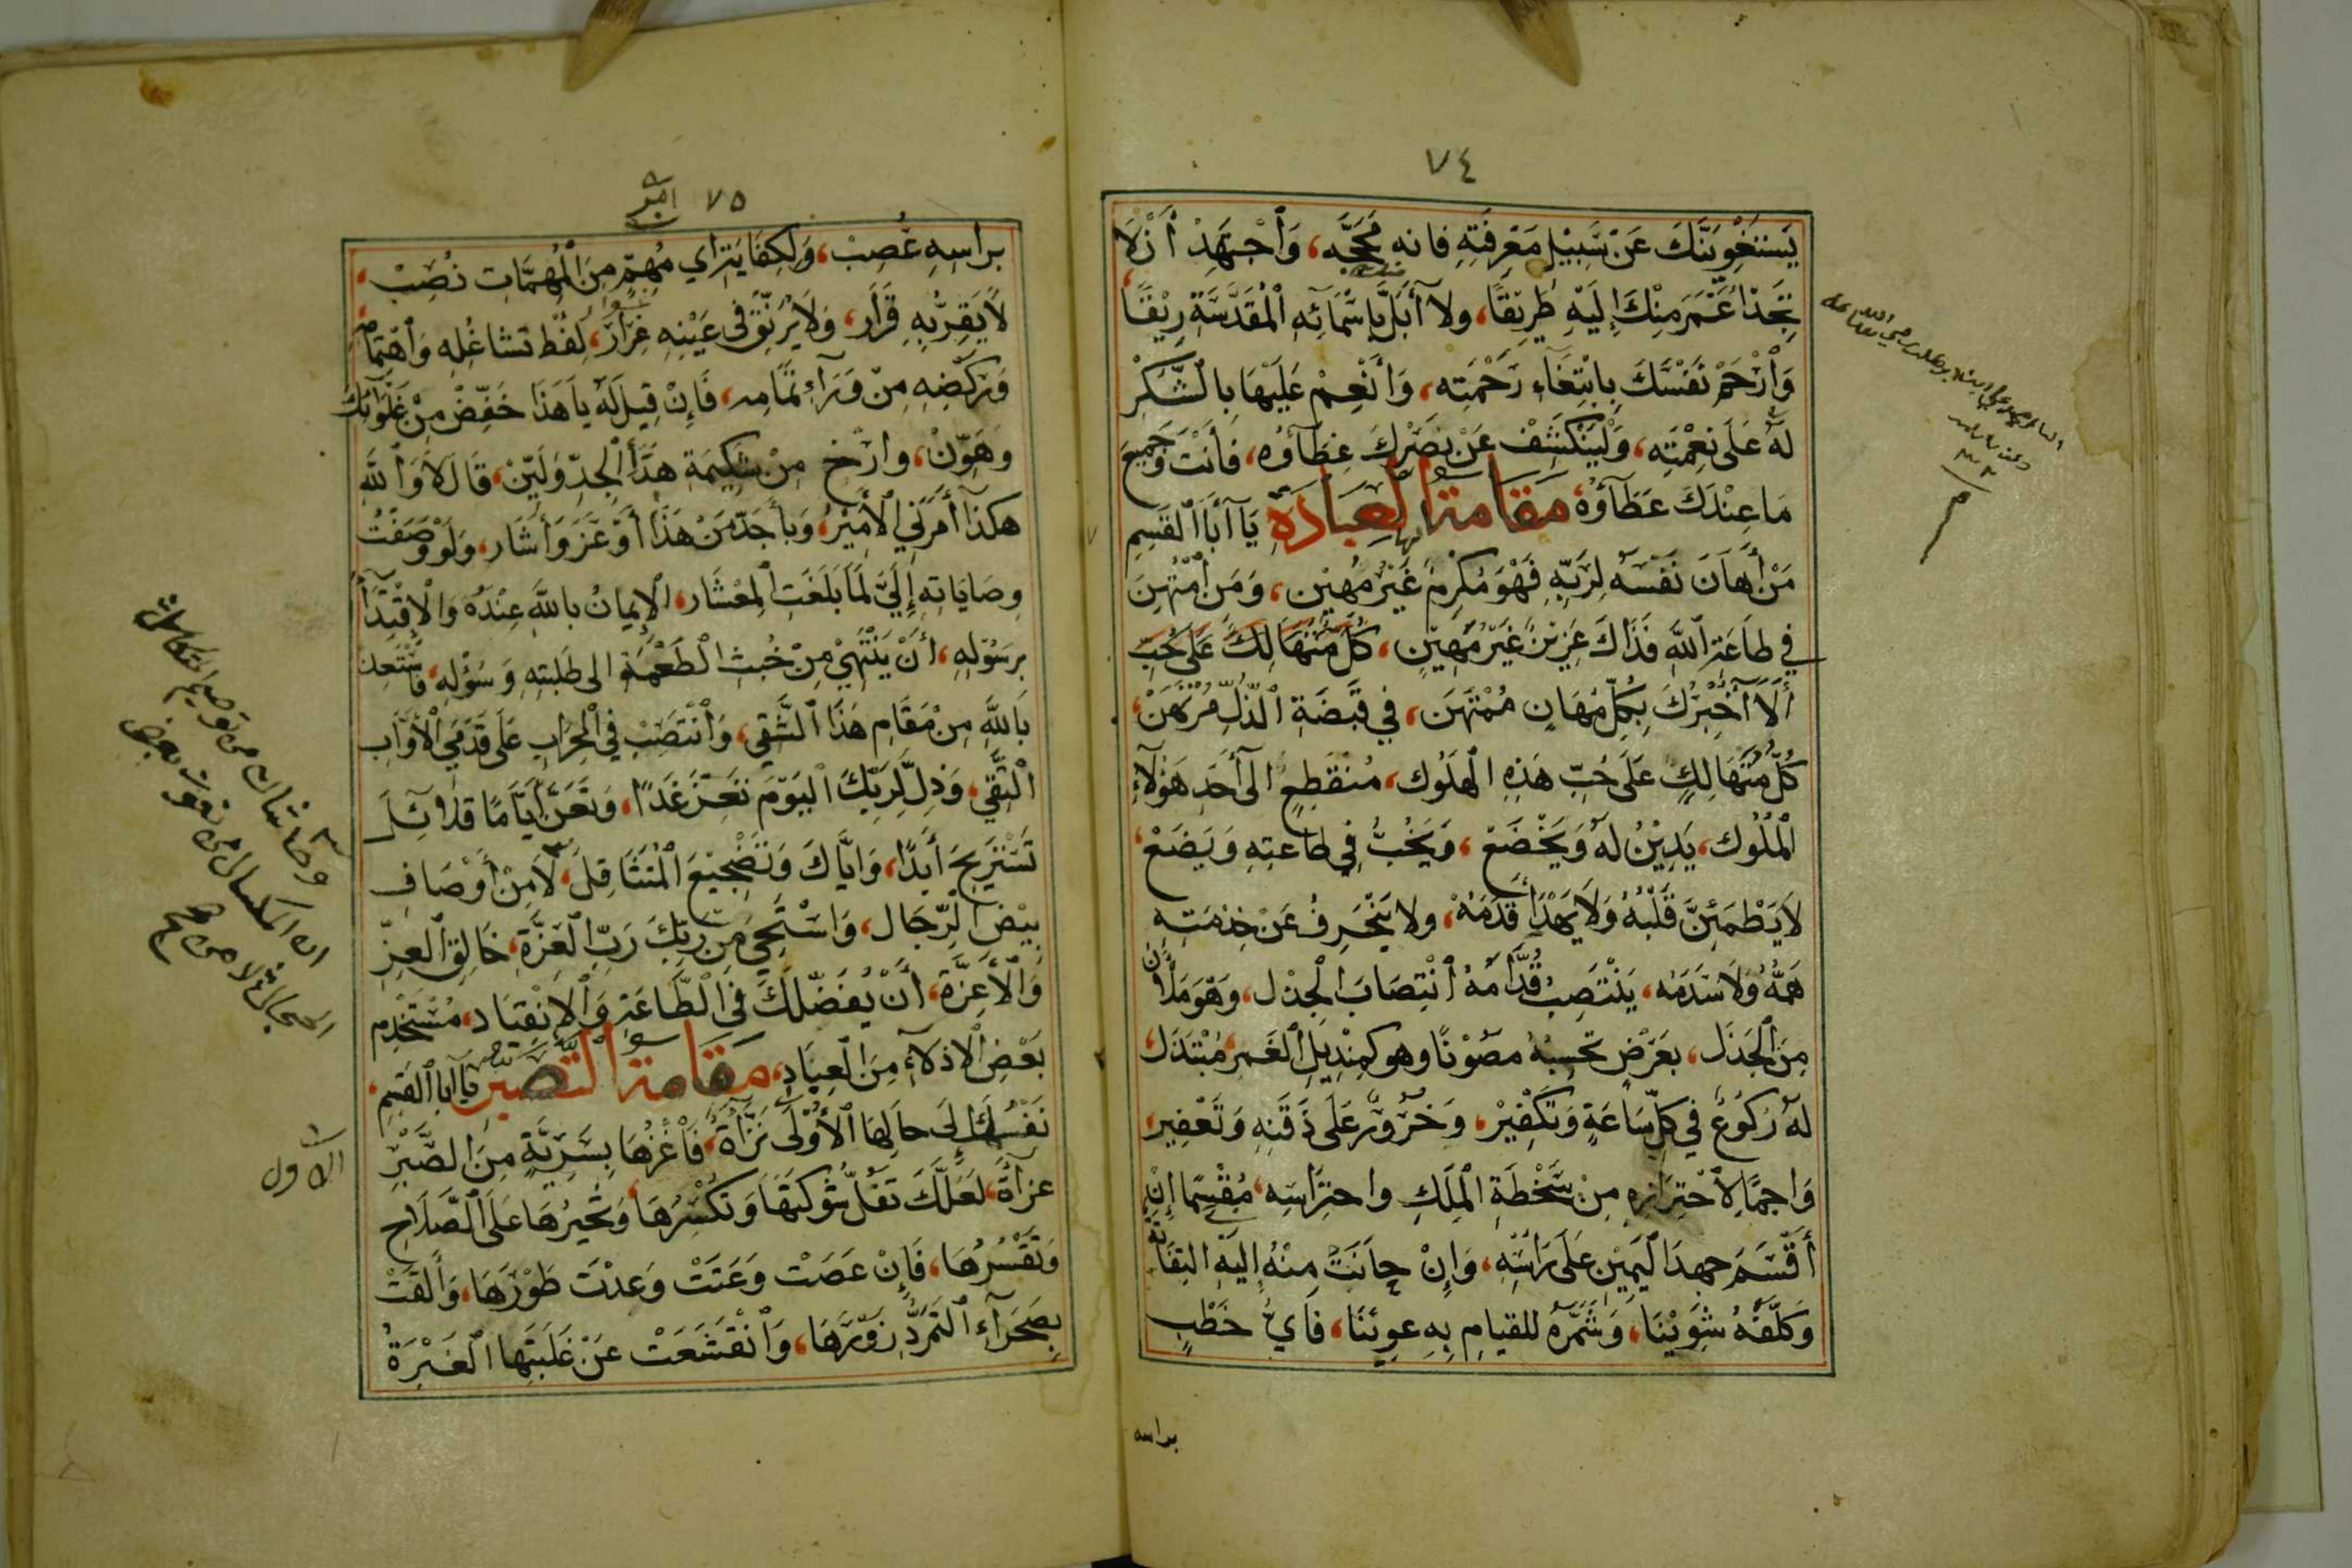 ٧٤
يَسْتَغْوِيَنَّكَ عَنْ سَبِيْلِ مَعْرِفَتِهِ فانه مَحَجَّه، وَاجْهَدْ أَنْ لَا
تَجِدَ أعْمَرَ مِنْكَ إِلَيْهِ طَرِيْقًا، ولا أبَلَّ بِأسْمَائِهِ الْمُقَدَّسَةِ رِيْقًا،
وَارْحَمْ نَفْسَكَ بِابْتِغَاءِ رَحْمَتِه، وَأَنْعِمْ عَلَيْهَا بِالشُّكْرِ
لَهُ عَلَى نِعْمَتِه، وَلْيَنْكَشِفْ عَنْ بَصَرِكَ غِطَآؤه، فَأَنْتَ وَجَمِيعُ
مَا عِنْدَكَ عَطَآؤهُ مقامة العبادة يَآ أَبَا الْقَسِمِ
مَنْ أَهَانَ نَفْسَهُ لِرَبِّهِ فَهْوَ مُكْرِمٌ غَيْرُ مُهِيْنٍ، وَمَنِ امْتُهِنَ
فِي طَاعَةِ اللَّهِ فَذَاكَ عَزِيْزٌ غَيْرُ مَهِيْنٍ، كُلُّ مُتَهَالِكٍ عَلَى حُبِّ
أَلَا أُخْبِرُكَ بِكُلِّ مُهَانٍ مُمْتَهَنٍ، فِي قَبْضَةِ الذُّلِّ مُرْتَهَنٍ،
كُلُّ مُتَهَالِكٍ عَلَى حُبِّ هَذِهِ الهَلُوك، مُنْقَطِعٍ الى أحَدِ هَؤُلَآءِ
الْمُلُوك، يَدِيْنُ لَهُ وَيَخْضَعْ، وَيَخُبُّ فِي طاعتِهِ وَيَضَعْ،
لَا يَطْمَئِنُّ قَلْبُهُ وَلَا يَهْدَأُ قَدَمُهْ، ولا يَنْحَرِفُ عَنْ خِدْمَتِهِ
هَمُّهُ وَلَا سَدَمُه، يَنْتَصِبُ قُدَّامَهُ انْتِصَابَ الْجِذْل، وَهْوَ مَلْآنُ
مِنَ الْجَذَل، بعَرْضٍ تحسبُهُ مَصُوْنًا وهو كمِنْدِيْلِ الْغَمَرِ مُبْتَذَل،
لَهُ رُكُوْعٌ فِي كُلِّ سَاعَةٍ وَتَكْفِيْر، وَخَرُوْرٌ عَلَى ذَقَنِهِ وَتَعْفِير،
وَاجمًا لِاحْتِرَازِهِ مِنْ سَخْطَةِ الْمَلِكِ واحتِرَاسِه، مُقْسِمًا إِنْ
أَقْسَمَ جهدَ الْيَمِيْنِ عَلَى رَأسِه، وَإِنْ حانَتْ مِنْهُ إِلَيْهِ الْتِفَاتَةٌ
وَكَلَّفَهُ شُوَيْئا، وَشَمَّرَهُ للقيامِ بِهِ عويئنا، فَأَيُّ خَطْبٍ
براسه
٧٥
برأسِهِ عُصِبْ، وَلِكِفَايَتِهِ اي مُهِمٍّ مِنَ الْمُهِمَّاتِ نُصِبْ،
لَا يَقِرُّ بِهِ قَرَار، وَلَا يُرَنِّقُ في عَيْنِهِ غِرَار، لِفَرْطِ تشاغُلِه وَاهْتِمَامِهِ
وَرَكْضِهِ مِنْ وَرَاءِ تمَامِه، فَإِنْ قِيلَ لَهُ يَا هَذَا خَفِّضْ مِنْ غُلَوَائِكَ
وَهَوِّنْ، وارْخِ مِنْ شَكِيمَةِ هَذَا الْجِدِّ وَلَيِّنْ، قَالَ لَا وَاللَّهِ
هكذا أَمَرَنِي الأَمِيْرُ، وَبِأَجَدَّ مِنْ هَذَا أَوْعَزَ وَأشَار، وَلَوْ وَصَفْتُ
وصَايَاتِهِ إِلَيَّ لَمَا بَلَغَتِ المِعْشَار، الإِيمانُ باللَّهِ عِنْدَهُ وَالاقْتِدَاءُ
برسُوْلِهِ، أَنْ يَنْتَهِيَ مِنْ خُبْثِ الطُّعْمَةِ الى طَلِبَتِهِ وَسُؤْلِه، فاسْتَعِذْ
بِاللَّهِ مِنْ مَقَامِ هَذَا الشَّقِي، وَانْتَصِبْ فِي الْمِحْرَابِ عَلَى قَدَمَيِ الأَوَّابِ
التَّقِي، وَذِلَّ لِرَبِّكَ الْيَوْمَ تَعِزَّ غَدًا، وَتَعَنَّ أَيَّامًا قَلَائِلَ
تَسْتَرِيحَ أَبَدًا، وَايَّاكَ وَتَضْجِيْعَ الْمُتَثَاقِلِ، لَا مِنْ أَوْصَافِ
بِيْضِ الرِّجَال، وَاسْتَحْيِ مِنْ رَبِّكَ رَبِّ الْعِزَّةِ، خَالِقِ الْعِزِّ
وَالأَعِزَّةِ، أَنْ يَفْضُلَكَ فِي الطَّاعَةِ وَالانْقِيَاد، مُسْتَخْدِمُ
بَعْضِ الأَذِلَّاءِ مِنَ الْعِبَاد، مقامة التصبر يا أبا الْقَسِمِ
نَفْسُكَ إِلَى حَالِهَا الأُوْلَى نَزَّاةٌ، فَاغْزُهَا بِسَرِيَّةٍ مِنَ الصَّبْرِ
غزاة، لَعَلَّكَ تَفُلُّ شَوْكَتَهَا وَتَكْسِرُهَا، وَتُجْبِرُهَا عَلَى الصَّلَاحِ
وَتَقْسِرُهَا، فَإِنْ عَصَتْ وَعَتَتْ وَعدَتْ طَوْرَهَا، وَأَلْقَتْ
بِصَحْرَآءِ التَّمَرُّدِ زَوْرَهَا، وَانْقَشَعَتْ عَنْ غَلَبَتِهَا الْغَبْرَةُ
الاول